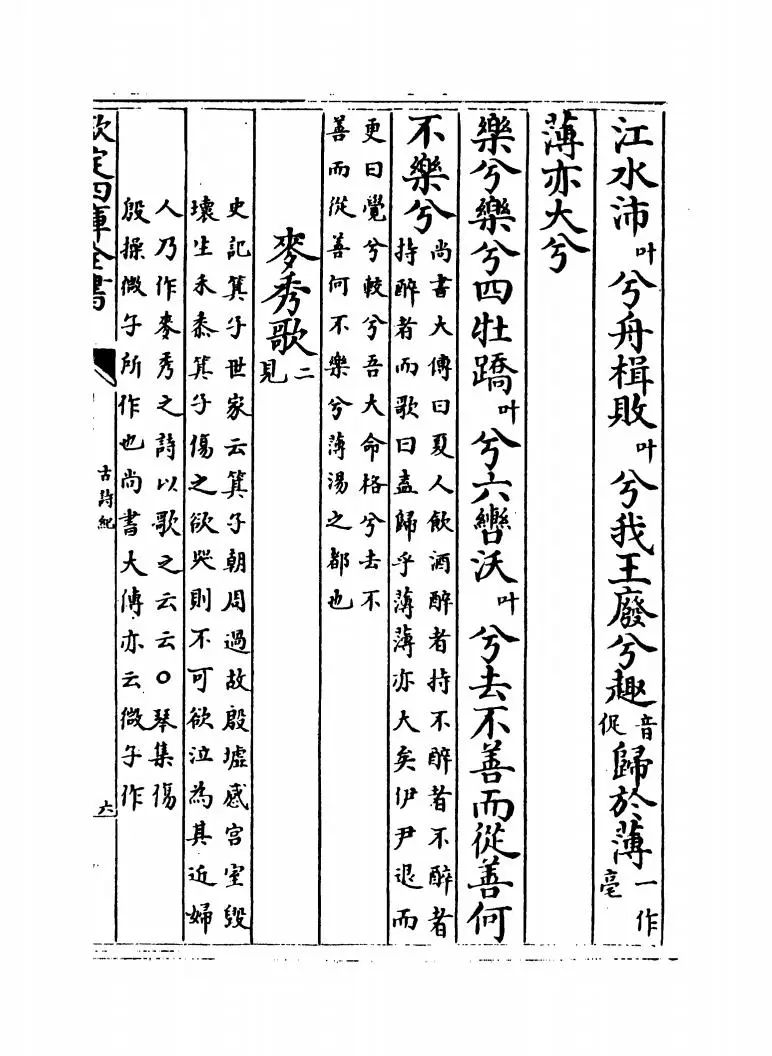 江水沛叶兮舟楫敗叶兮我王廢兮趣音促歸於薄一作亳
薄亦大兮
樂兮樂兮四牡蹻叶兮六轡沃叶兮去不善而從善何
不樂兮尚書大傳曰夏人飲酒醉者持不醉者不醉者
持醉者而歌曰盍歸乎薄薄亦大矣伊尹退而
更曰覺兮較兮吾大命格兮去不
善而從善何不樂兮薄湯之都也
麥秀歌二見
史記箕子世家云箕子朝周過故殷墟感宫室毀
壞生禾黍箕子傷之欲哭則不可欲泣為其近婦
人乃作麥秀之詩以歌之云云○琴集傷
殷操微子所作也尚書大傳亦云微子作
欽定四庫全書
古詩紀
六